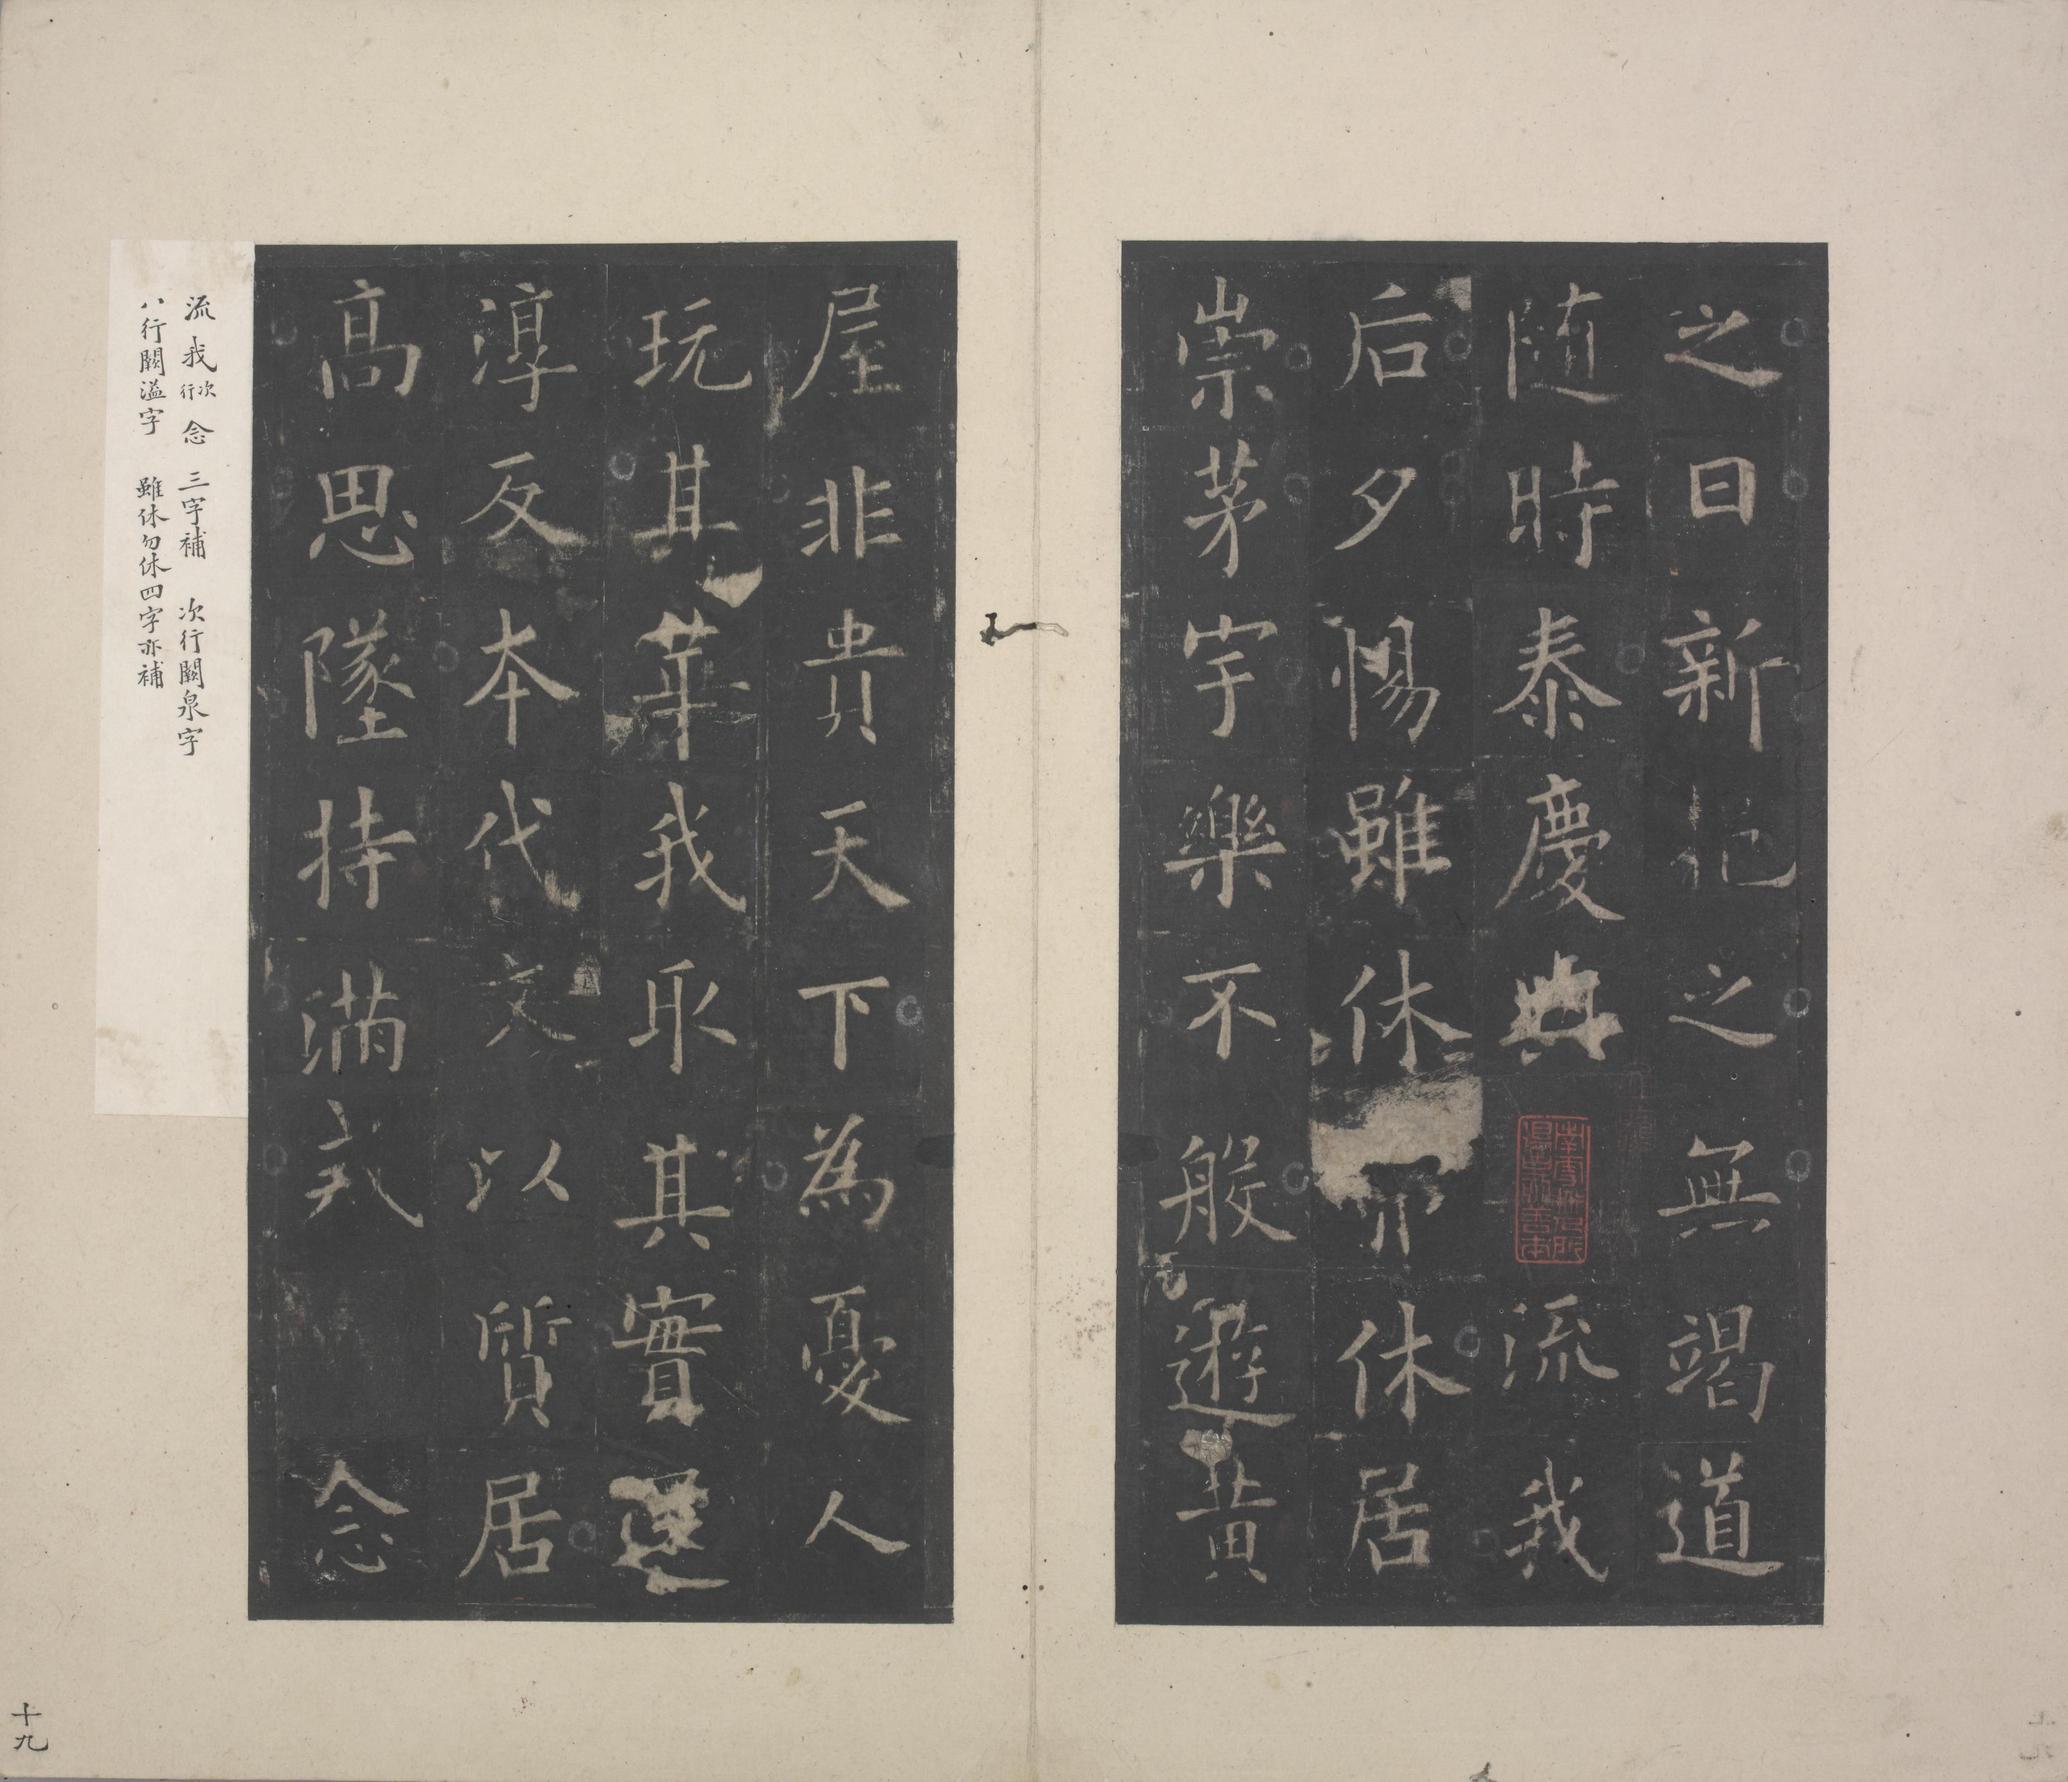 之日新挹之無竭道
随時泰慶與流我
后夕惕雖休休居
崇茅宇樂不般遊黄
屋非貴天下為憂人
玩其華我取其實還
淳反本代文以質居
高思墜持滿戒念
流我次行念三字補 次行闕泉字
八行闕溢字 雖休勿休四字亦補
十九